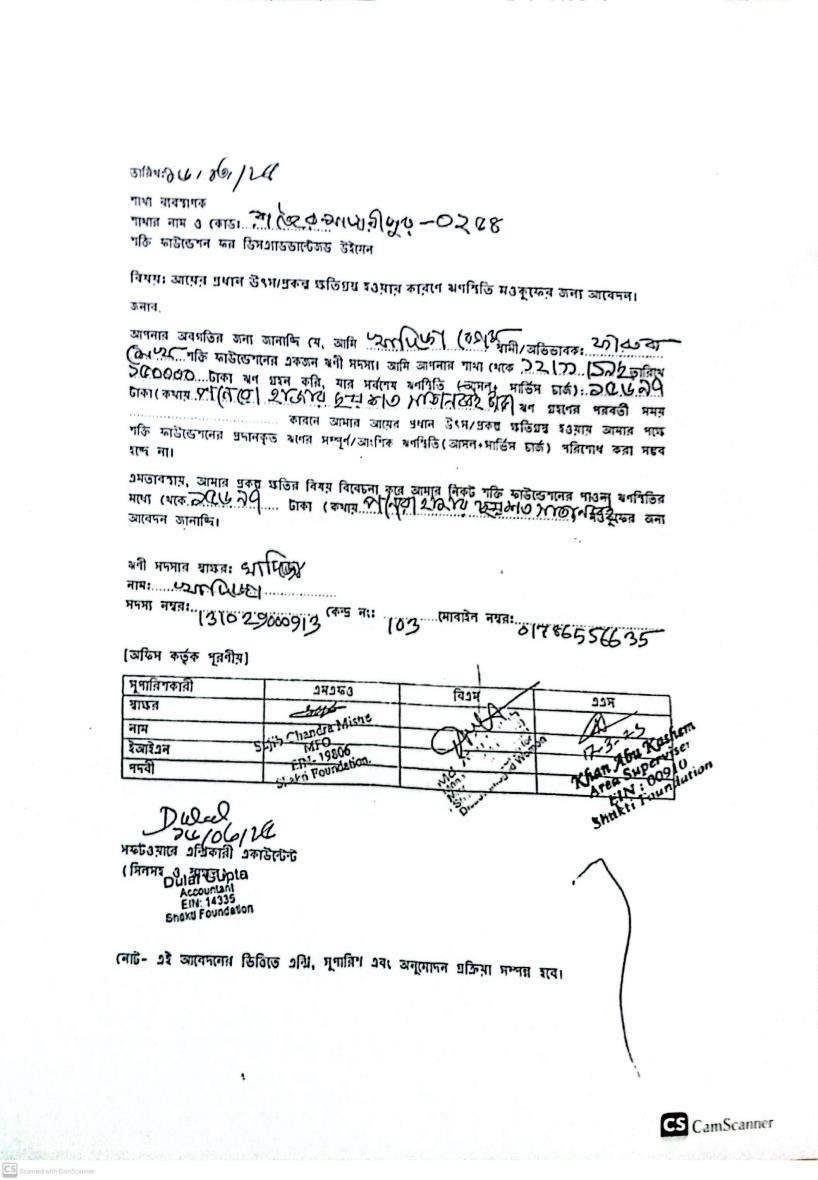 তারিখঃ
শাখা ব্যবস্থাপক
শাখার নাম ও কোডঃ রাজৈর মাদারীপুর-০২৫৪
শক্তি ফাউন্ডেশন ফর ডিসএ্যাডভান্টেজড উইমেন
বিষয়: আয়ের প্রধান উৎস/প্রকল্প ক্ষতিগ্রস্ত হওয়ার কারণে ঋণস্থিতি মওকুফের জন্য আবেদন।
জনাব,
আপনার অবগতির জন্য জানাচ্ছি যে, আমি খাদিজা বেগম স্বামী/অভিভাবক:
শক্তি ফাউন্ডেশনের একজন ঋণী সদস্য। আমি আপনার শাখা থেকে তারিখে
টাকা ঋণ গ্রহন করি, যার সর্বশেষ ঋণস্থিতি (আসল+ সার্ভিস চার্জ): ১৫৬৯৭
টাকা (কথায় পনেরো হাজার ছয়শত সাতানব্বই টাকা ঋণ গ্রহণের পরবর্তী সময়
কারনে আমার আয়ের প্রধান উৎস/প্রকল্প ক্ষতিগ্রস্ত হওয়ায় আমার পক্ষে
শক্তি ফাউন্ডেশনের প্রদানকৃত ঋণের সম্পূর্ণ/আংশিক ঋণস্থিতি (আসল+সার্ভিস চার্জ) পরিশোধ করা সম্ভব
হচ্ছে না।
এমতাবস্থায়, আমার প্রকল্প ক্ষতির বিষয় বিবেচনা করে আমার নিকট শক্তি ফাউন্ডেশনের পাওনা ঋণস্থিতির
মধ্যে থেকে ১৫৬৯৭ টাকা (কথায় পনেরো হাজার ছয়শত সাতানব্বই মওকুফের জন্য
আবেদন জানাচ্ছি।
ঋণী সদস্যের স্বাক্ষর: খাদিজা
নাম: খাদিজা
সদস্য নম্বর: 13102900913 কেন্দ্র নং: 103 মোবাইল নম্বর: 01786556635
[অফিস কর্তৃক পূরণীয়]
সুপারিশকারী এমএফও বিএম এএস
স্বাক্ষর
নাম
ইআইএন
পদবী
Chandra Mistre
MFO
EIN- 19806
Shakti Foundation.
17-3-25
Khan Abu Kashem
Area Superviser
EIN : 00910
Shakti Foundation
Dulal
সফটওয়ারে এন্ট্রিকারী একাউন্টেন্ট
(সিলসহ ও
Dulal Gupta
Accountant
EIN: 14335
Shakti Foundation
নোট- এই আবেদনের ভিত্তিতে এন্ট্রি, সুপারিশ এবং অনুমোদন প্রক্রিয়া সম্পন্ন হবে।
CS CamScanner
CS Scanned with CamScanner